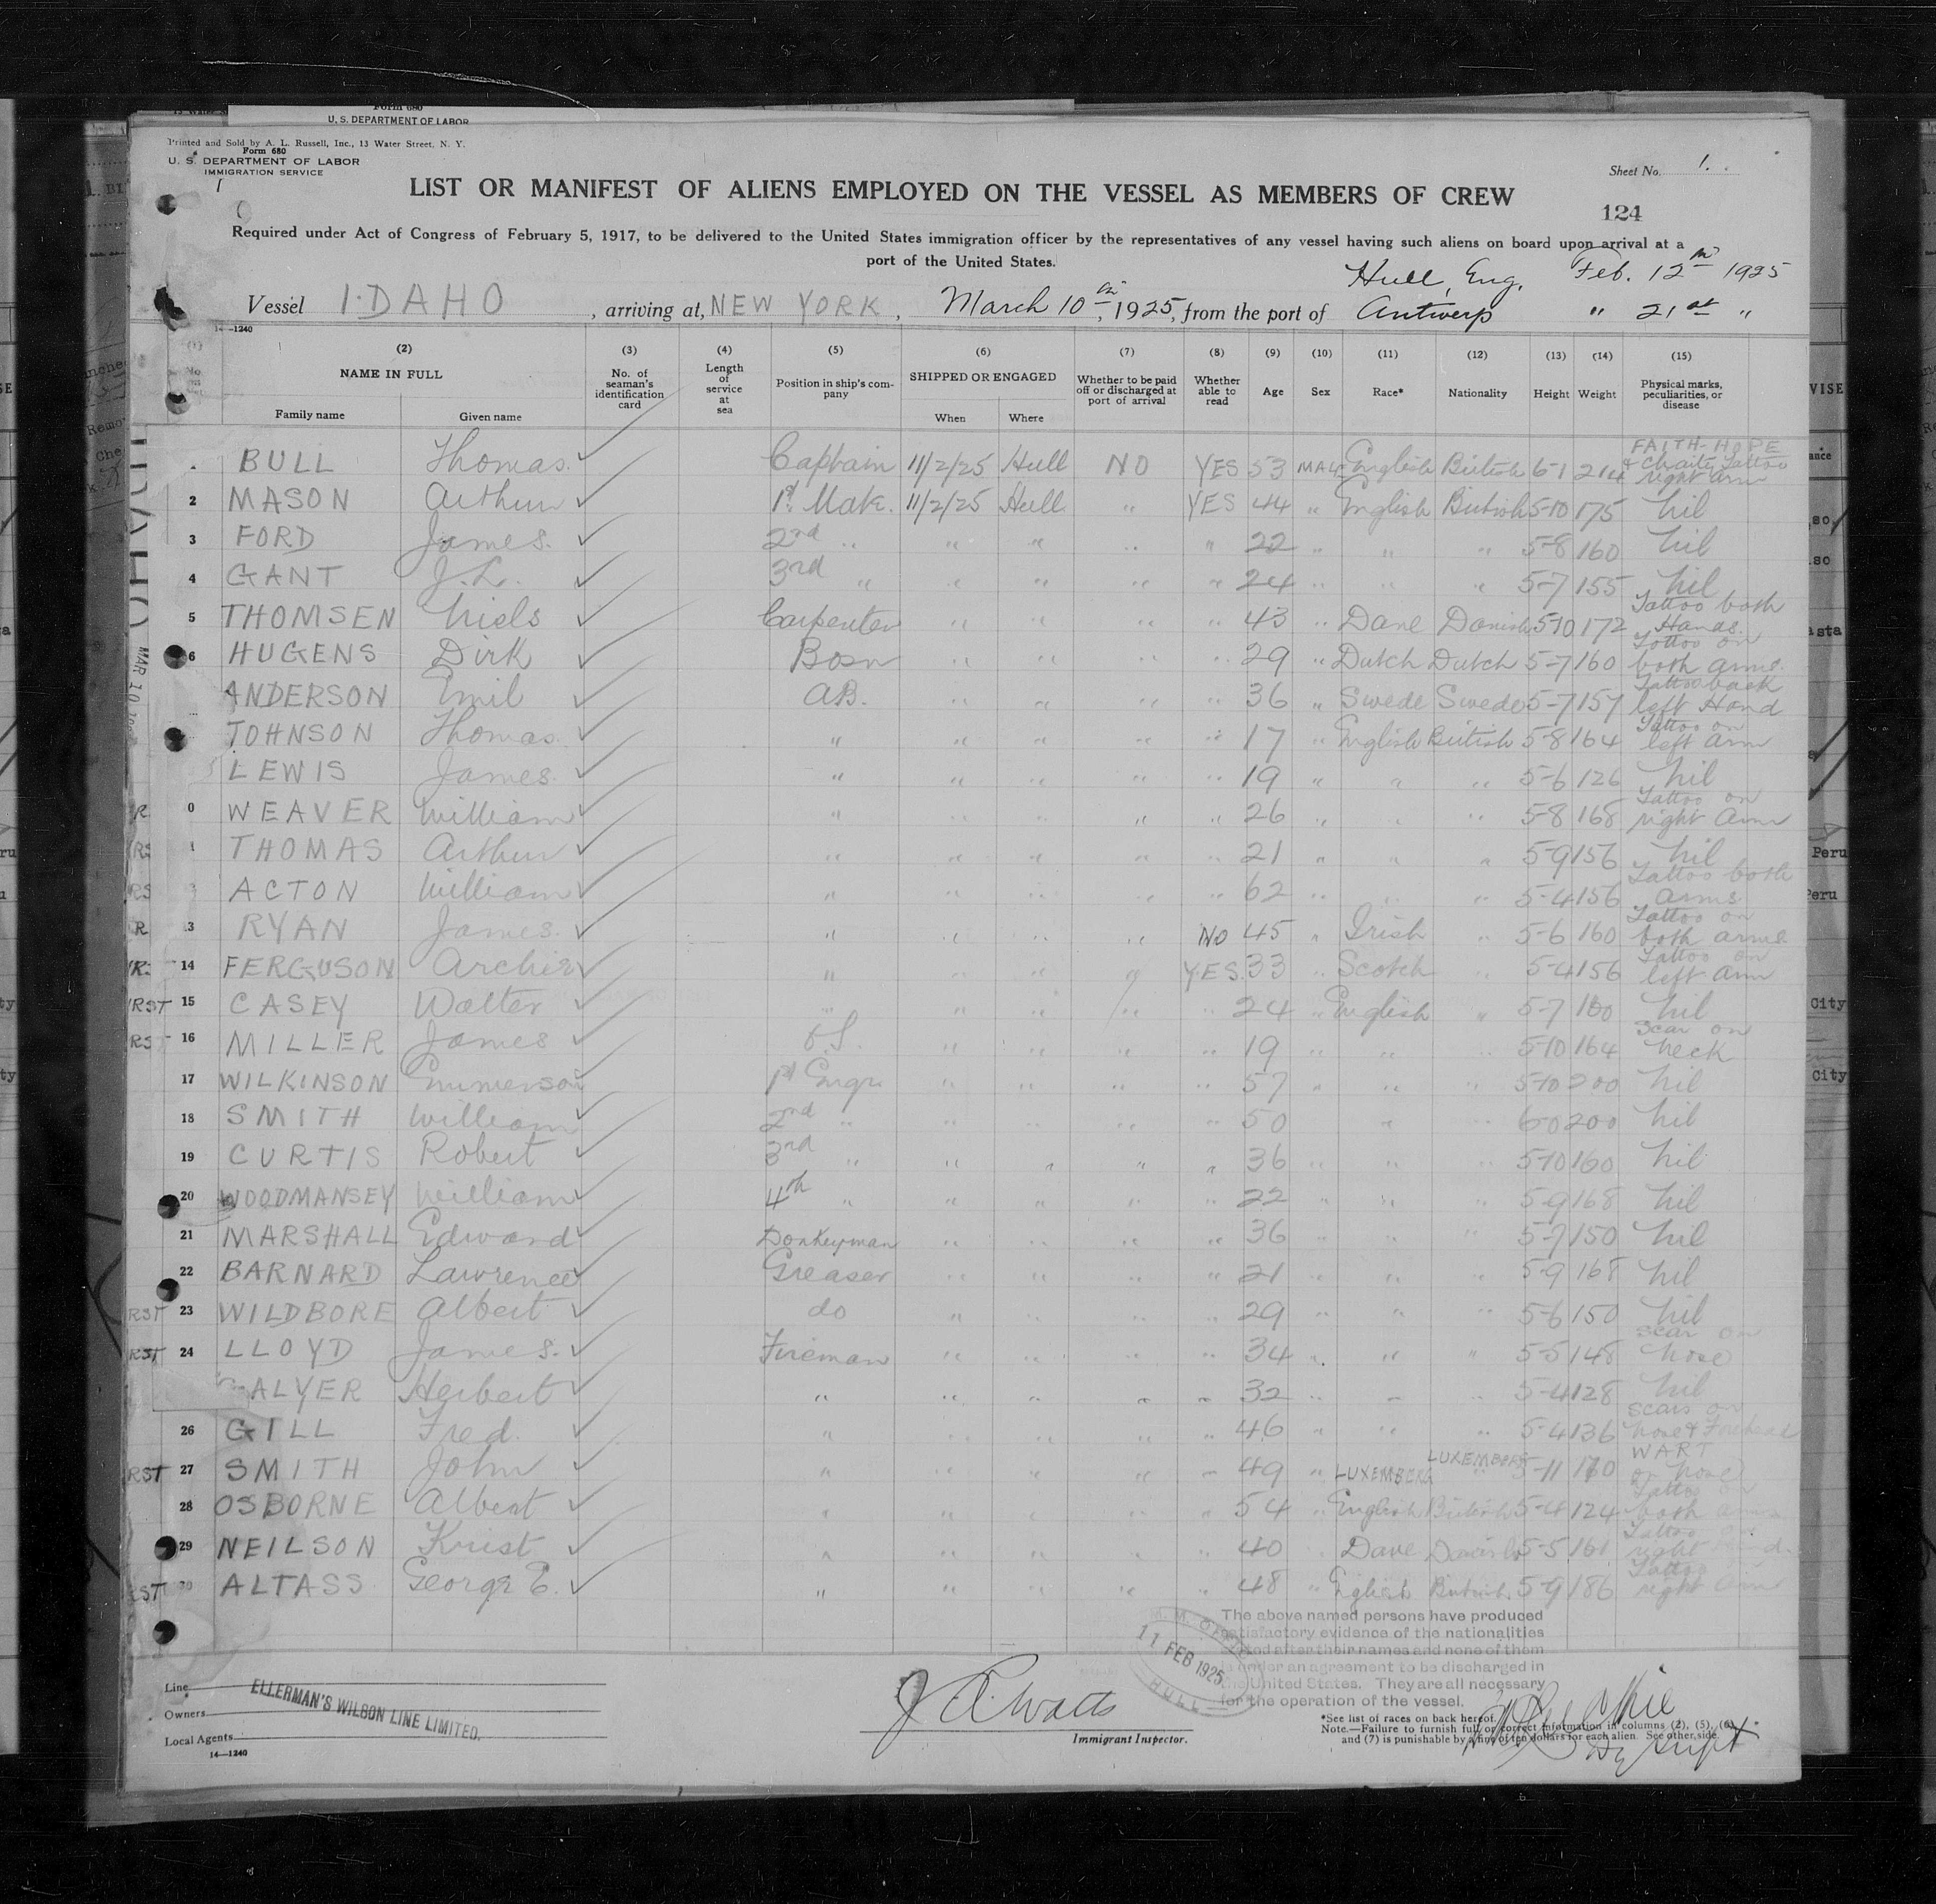 Form 680
U. S. DEPARTMENT OF LABOR
Printed and Sold by A. L. Russell, Inc., 13 Water Street, N. Y.
Form 680
U. S. DEPARTMENT OF LABOR
IMMIGRATION SERVICE
Sheet No. 1.
LIST OR MANIFEST OF ALIENS EMPLOYED ON THE VESSEL AS MEMBERS OF CREW
124
Required under Act of Congress of February 5, 1917, to be delivered to the United States immigration officer by the representatives of any vessel having such aliens on board upon arrival at a
port of the United States.
Hull, Eng. Feb. 12th 1925
Vessel IDAHO, arriving at, NEW YORK, March 10th, 1925, from the port of Antwerp " 21st "
14-1240
(2) (3) (4) (5) (6) (7) (8) (9) (10) (11) (12) (13) (14) (15)
NAME IN FULL Family name Given name No. of seaman's identification card Length of service at sea Position in ship's company SHIPPED OR ENGAGED When Where Whether to be paid off or discharged at port of arrival Whether able to read Age Sex Race* Nationality Height Weight Physical marks, peculiarities, or disease
BULL Thomas. Captain 11/2/25 Hull NO YES 53 MALE English British 6-1 214 FAITH-HOPE & Charity Tattoo right arm
2 MASON Arthur 1st Mate. 11/2/25 Hull " YES 44 " English British 5-10 175 Nil
3 FORD James. 2nd " " " " " 22 " " " 5-8 160 Nil
4 GANT J.L. 3rd " " " " " 24 " " " 5-7 155 Nil
5 THOMSEN Niels Carpenter " " " " 43 " Dane Danish 5-10 172 Tattoo both Hands.
6 HUGENS Dirk Bosn " " " " 29 " Dutch Dutch 5-7 160 Tattoo on both arms.
ANDERSON Emil AB. " " " " 36 " Swede Swede 5-7 157 Tattoo back left Hand
JOHNSON Thomas. " " " " " 17 " English British 5-8 164 Tattoo on left arm
LEWIS James. " " " " " 19 " " " 5-6 126 Nil
0 WEAVER William " " " " " 26 " " " 5-8 168 Tattoo on right arm
1 THOMAS Arthur " " " " " 21 " " " 5-9 156 Nil
ACTON William " " " " " 62 " " " 5-4 156 Tattoo both arms
3 RYAN James. " " " " NO 45 " Irish " 5-6 160 Tattoo on both arms
14 FERGUSON Archie " " " " YES. 33 " Scotch " 5-4 156 Tattoo on left arm
RST 15 CASEY Walter " " " " " 24 " English " 5-7 160 Nil
RST 16 MILLER James " " " " 19 " " " 5-10 164 Scar on neck
17 WILKINSON Emmerson 1st Engr " " " " 57 " " " 5-10 200 Nil
18 SMITH William 2nd " " " " " 50 " " " 6-0 200 Nil
19 CURTIS Robert 3rd " " " " " 36 " " " 5-10 160 Nil
20 WOODMANSEY William 4th " " " " " 22 " " " 5-9 168 Nil
21 MARSHALL Edward Donkeyman " " " " 36 " " " 5-7 150 Nil
22 BARNARD Lawrence Greaser " " " " 21 " " " 5-9 168 Nil
RST 23 WILDBORE Albert do " " " " 29 " " " 5-6 150 Nil
RST 24 LLOYD James. Fireman " " " " 34 " " " 5-5 148 Scar on nose
ALYER Herbert " " " " " 32 " " " 5-4 128 Nil
26 GILL Fred. " " " " " 46 " " " 5-4 136 Scars on nose & Forehead
RST 27 SMITH John " " " " " 49 " LUXEMBERG LUXEMBERG 5-11 WART on nose
28 OSBORNE Albert " " " " " 54 " English British 5-4 124 Tattoo on both arms
29 NEILSON Krist " " " " " 40 " Dane Danish 5-5 161 Tattoo on right hand.
30 ALTASS George E. " " " " " 48 " English British. 5-9 186 Tattoo right arm
The above named persons have produced
satisfactory evidence of the nationalities
after their names and none of them
under an agreement to be discharged in
the United States. They are all necessary
for the operation of the vessel.
M. M. OFFICE
11 FEB 1925
HULL
Line
Owners
Local Agents
ELLERMAN'S WILSON LINE LIMITED.
14—1240
J A Watts
Immigrant Inspector.
*See list of races on back hereof.
Note.—Failure to furnish full or correct information in columns (2), (5), (6)
and (7) is punishable by a fine of ten dollars for each alien. See other side.
Dy Supt
MAR 10
Peru
Peru
City
City